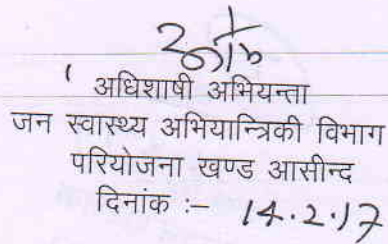 अधिशाषी अभियन्ता
जन स्वास्थ्य अभियान्त्रिकी विभाग
परियोजना खण्ड आसीन्द
दिनांक :– 14.2.17